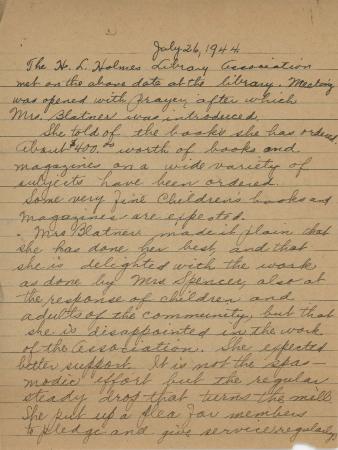 July 26, 1944
The H. L. Holmes Library Association
met on the above date at the library. Meeting
was opened with Prayer, after which
Mrs. Blatner was introduced.
She told of the books she has ordered
About $400.00 worth of books and
magazines on a wide variety of
subjects have been ordered.
Some very fine Childrens books and
Magazines are expected.
Mrs Blatner made it plain that
she has done her best, and that
she is delighted with the work
as done by Mrs Spencer, also at
the response of children and
adults of the community, but that
she is disappointed in the work
of the Association. She expected
better support. It is not the spas
modic effort but the regular
steady drop that turns the mill.
She put up a plea for members
to pledge and give service regularly,